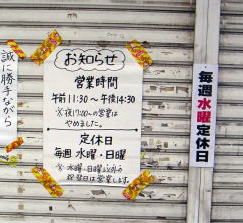 お知らせ
営業時間
午前11:30～午後14:30
※夜17:00への営業は
やめました。
定休日
毎週 水曜・日曜
※水曜・日曜以外の
祝翌日は営業します。
毎週水曜定休日
誠に勝手ながら